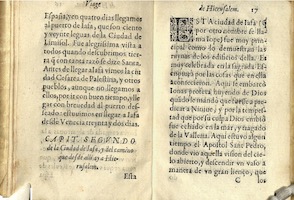 Viage
España, y en quatro dias llegamos
al puerto de Iafa, que son ciento
y veynte leguas de la Ciudad
de Limisol. Fue alegrissima vista a
todos quando descubrimos tierra
con tanta razon se dize Sancta.
Antes de llegar a Iafa vimos la ciu
dad Cesarea de Palestina, y otros
pueblos, aunque no llegamos a
ellos, por yr con buen tiempo, y lle-
gar con breuedad al puerto des-
seado: estuuimos en llegar a Iafa
desde Venecia treynta y dos dias.
CAPIT. SEGVNDO
de la Ciudad de Iafa, y del camino
que desde alli ay a Hie-
rusalem.
Esta
de Hierusalem. 17
ESTA ciudad de Iafa
por otro nombre se lla-
ma Ioppe, fue muy princi-
pal como lo demuestran las
ruynas de los edificios della.
Aqui es donde quiso huyr
Ionas quando Dios le manda
a yr a Niniue, y por la
que por su culpa Dios embio
fue echado en la mar, y tragado
de la Vallena. Aqui estuuo algun
tiempo el Apostol San Pedro,
donde vio aquella vision del cie-
lo abierto, y descendir vn vaso a
manera de vn gran lienço, que
C los